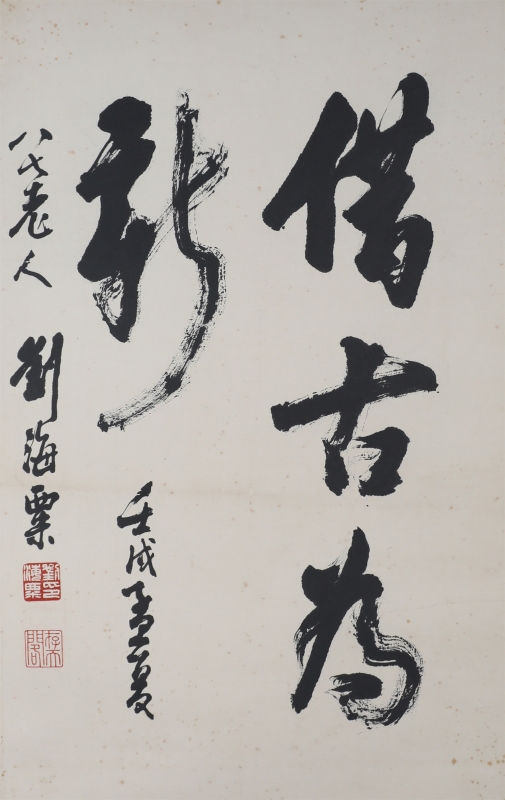 借古為
新
壬戌孟夏
八七老人
劉海粟
劉海粟印
存天閣